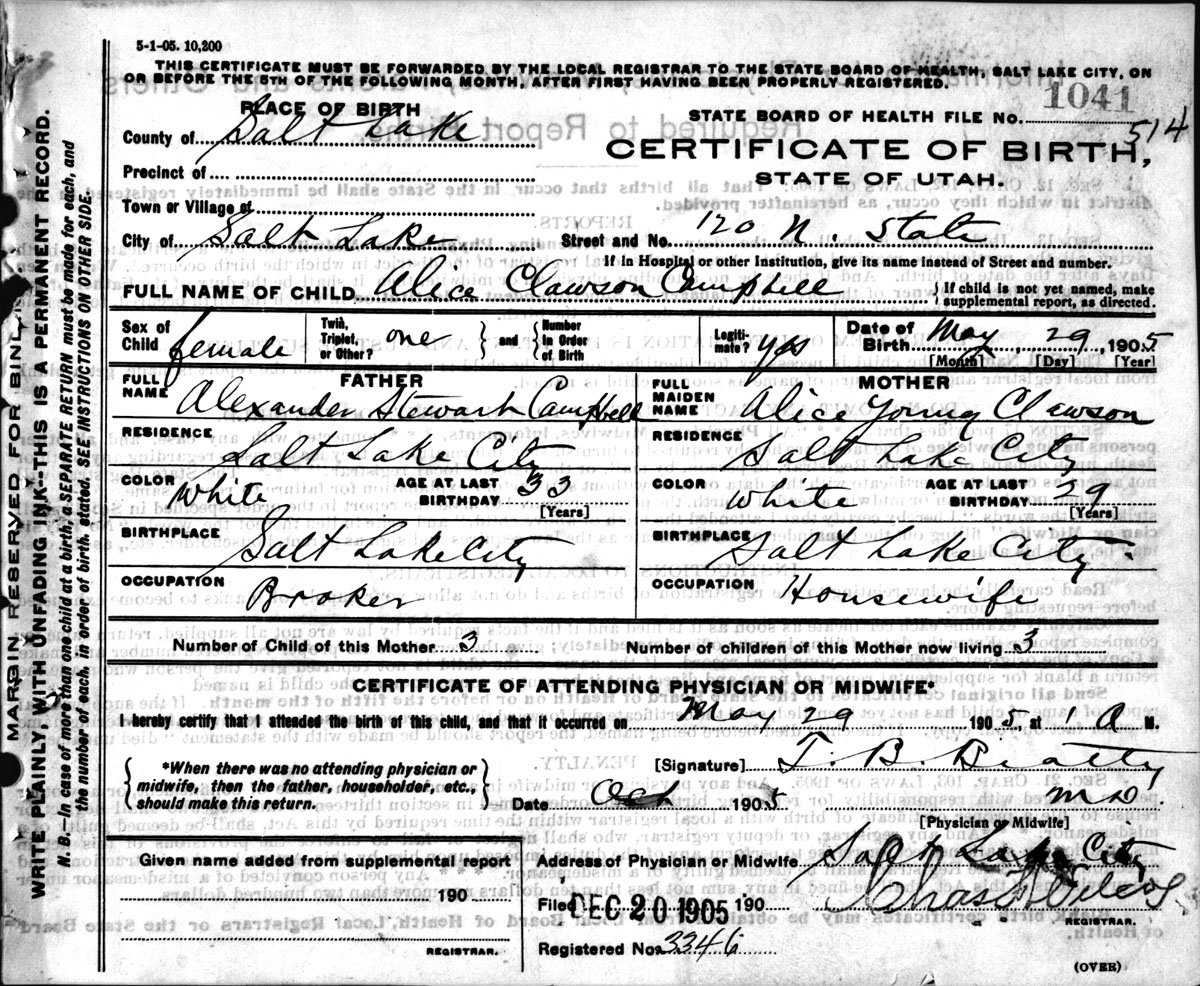 5-1-05. 10,200
THIS CERTIFICATE MUST BE FORWARDED BY THE LOCAL REGISTRAR TO THE STATE BOARD OF HEALTH, SALT LAKE CITY, ON
OR BEFORE THE 5TH OF THE FOLLOWING MONTH, AFTER FIRST HAVING BEEN PROPERLY REGISTERED.
1041
PLACE OF BIRTH
STATE BOARD OF HEALTH FILE No.
514
County of Salt Lake
CERTIFICATE OF BIRTH,
Precinct of
STATE OF UTAH.
Town or Village of
City of Salt Lake Street and No. 120 N. State
If in Hospital or other Institution, give its name instead of Street and number.
FULL NAME OF CHILD Alice Clawson Campbell { If child is not yet named, make supplemental report, as directed.
Sex of Child female Twin, Triplet, or Other? one } and { Number In Order of Birth Legiti-mate? yes Date of Birth May 29, 1905
[Month] [Day] [Year]
FATHER
FULL NAME Alexander Stewart Campbell
RESIDENCE Salt Lake City
COLOR White AGE AT LAST BIRTHDAY 33
[Years]
BIRTHPLACE Salt Lake City
OCCUPATION Broker
MOTHER
FULL MAIDEN NAME Alice Young Clawson
RESIDENCE Salt Lake City
COLOR White AGE AT LAST BIRTHDAY 29
[Years]
BIRTHPLACE Salt Lake City
OCCUPATION Housewife
Number of Child of this Mother 3 Number of children of this Mother now living 3
CERTIFICATE OF ATTENDING PHYSICIAN OR MIDWIFE*
I hereby certify that I attended the birth of this child, and that it occurred on May 29 1905, at 1 A M.
{ *When there was no attending physician or midwife, then the father, householder, etc., should make this return. }
[Signature] T. B. Beatty
Date Oct 1905 M.D.
[Physician or Midwife]
Given name added from supplemental report
190
REGISTRAR.
Address of Physician or Midwife Salt Lake City
Filed DEC 20 1905 190
REGISTRAR.
Registered No. 3346
(OVER)
MARGIN RESERVED FOR BINDING
WRITE PLAINLY, WITH UNFADING INK--THIS IS A PERMANENT RECORD.
N. B.—In case of more than one child at a birth, a SEPARATE RETURN must be made for each, and
the number of each, in order of birth, stated. SEE INSTRUCTIONS ON OTHER SIDE.